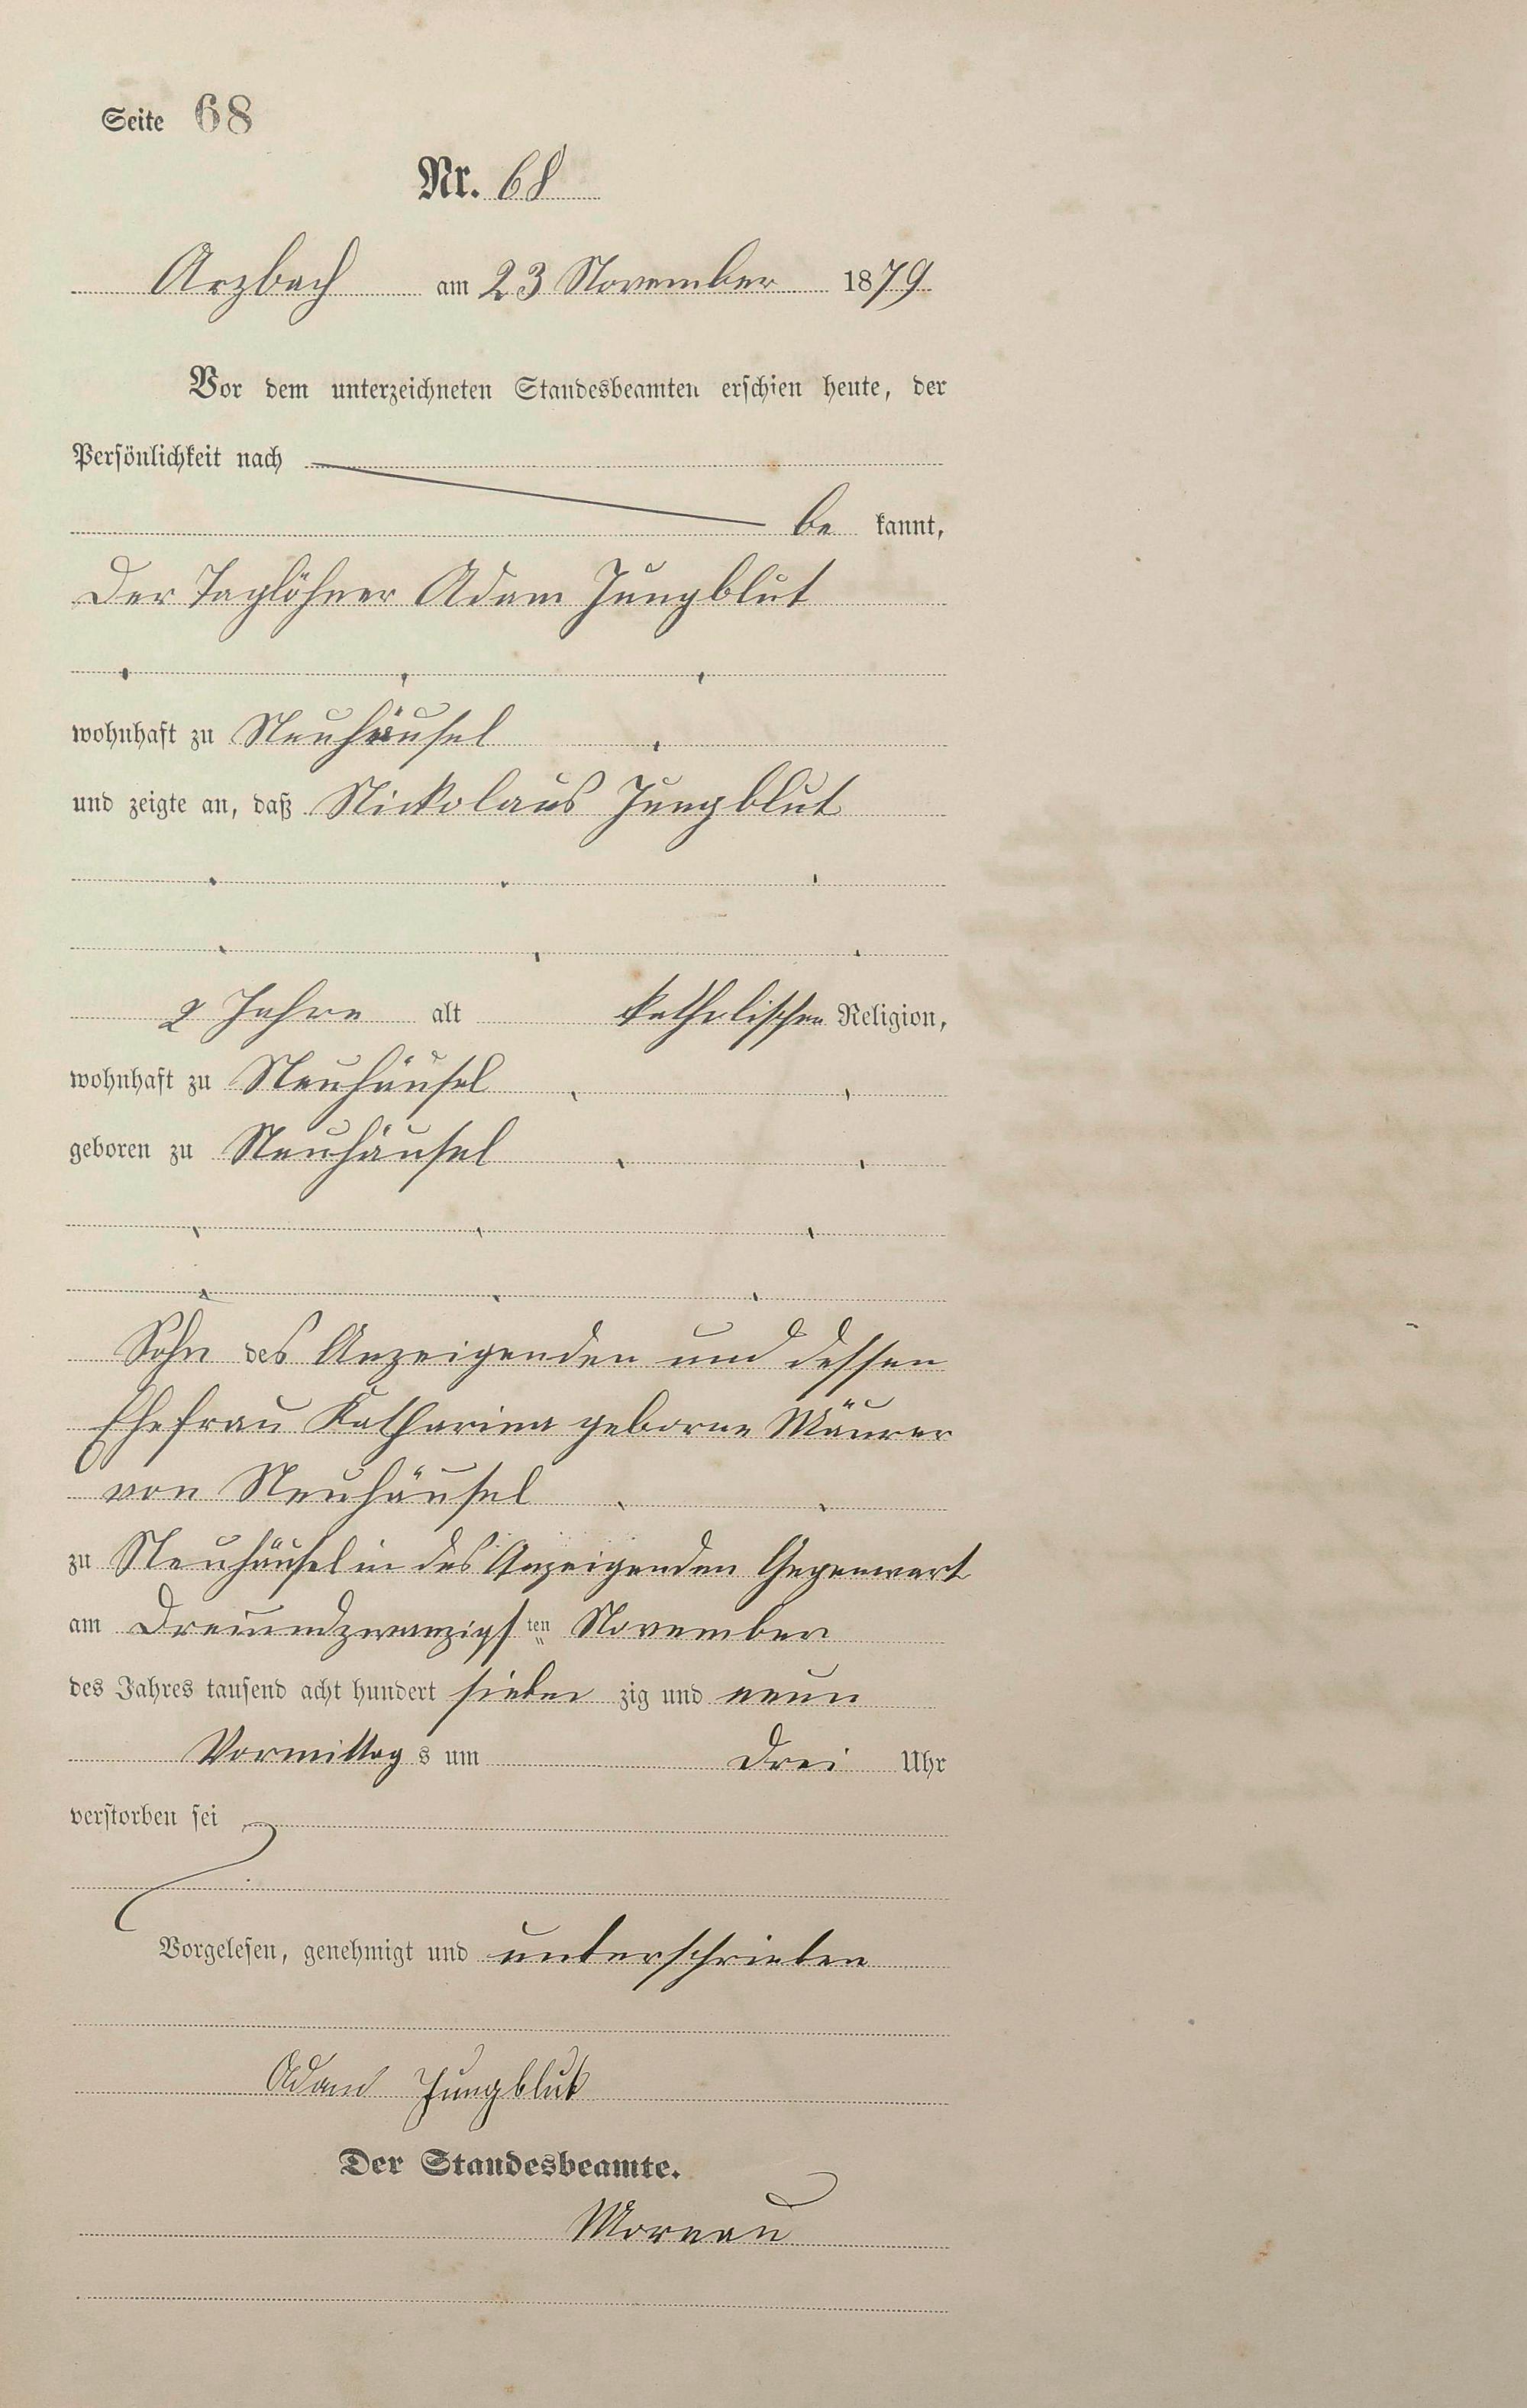 Seite 68
Nr. 68
Arzbach am 23 November 1879
Vor dem unterzeichneten Standesbeamten erschien heute, der
Persönlichkeit nach
be kannt,
Der Taglöhner Adam Jungblut
wohnhaft zu Neuhäusel
und zeigte an, daß Nickolaus Jungblut
2 Jahre alt katholischen Religion,
wohnhaft zu Neuhäusel
geboren zu Neuhäusel
Sohn des Anzeigenden und dessen
Ehefrau Katharina geborne Mäurer
von Neuhäusel
zu Neuhäusel in des Anzeigenden Gegenwart
am Dreiundzwanzigsten November
des Jahres tausend acht hundert sieben zig und neun
Vormittag s um Drei Uhr
verstorben sei
Vorgelesen, genehmigt und unterschrieben
Adam Jungblut
Der Standesbeamte.
Moreau